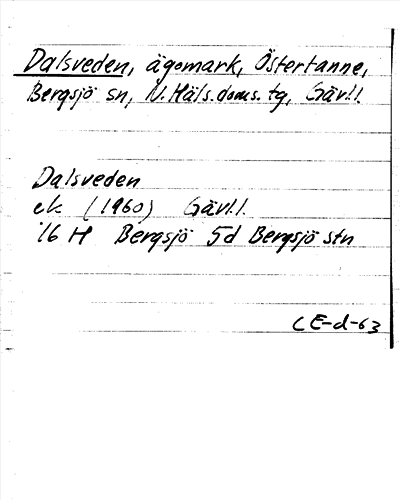 Dalsveden, ägomark, Östertanne,
Bergsjö sn, N. Häls. doms. tg, Gävl.l.
Dalsveden
ek (1960) Gävl.l.
16 H Bergsjö 5d Bergsjö stn
CE-d-63